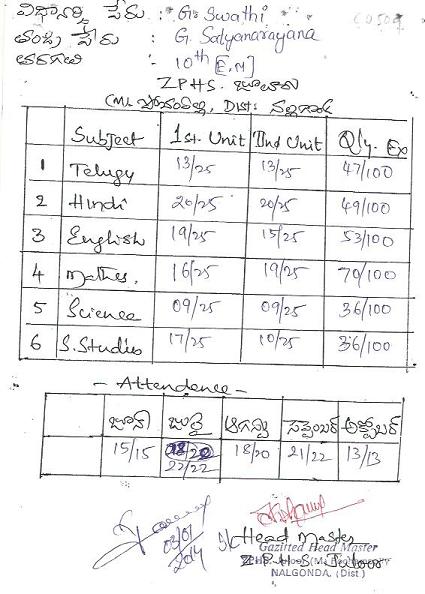 విద్యార్థి పేరు : G. Swathi
తండ్రి పేరు : G. Satyanarayana
తరగతి : 10th [E.M]
ZPHS.
Dist:
Subject 1st. Unit IInd Unit Qly. Ex
1 Telugu 13/25 13/25 47/100
2 Hindi 20/25 20/25 49/100
3 English 19/25 15/25 53/100
4 Mathes. 16/25 19/25 70/100
5 Science 09/25 09/25 36/100
6 S.Studies 17/25 10/25 36/100
- Attendence -
జూన్ జులై ఆగస్టు సెప్టెంబర్ అక్టోబర్
15/15 22/22 18/20 21/22 13/13
Head Master
Gazitted Head Master
Z.P.H.S.
NALGONDA. (Dist.)